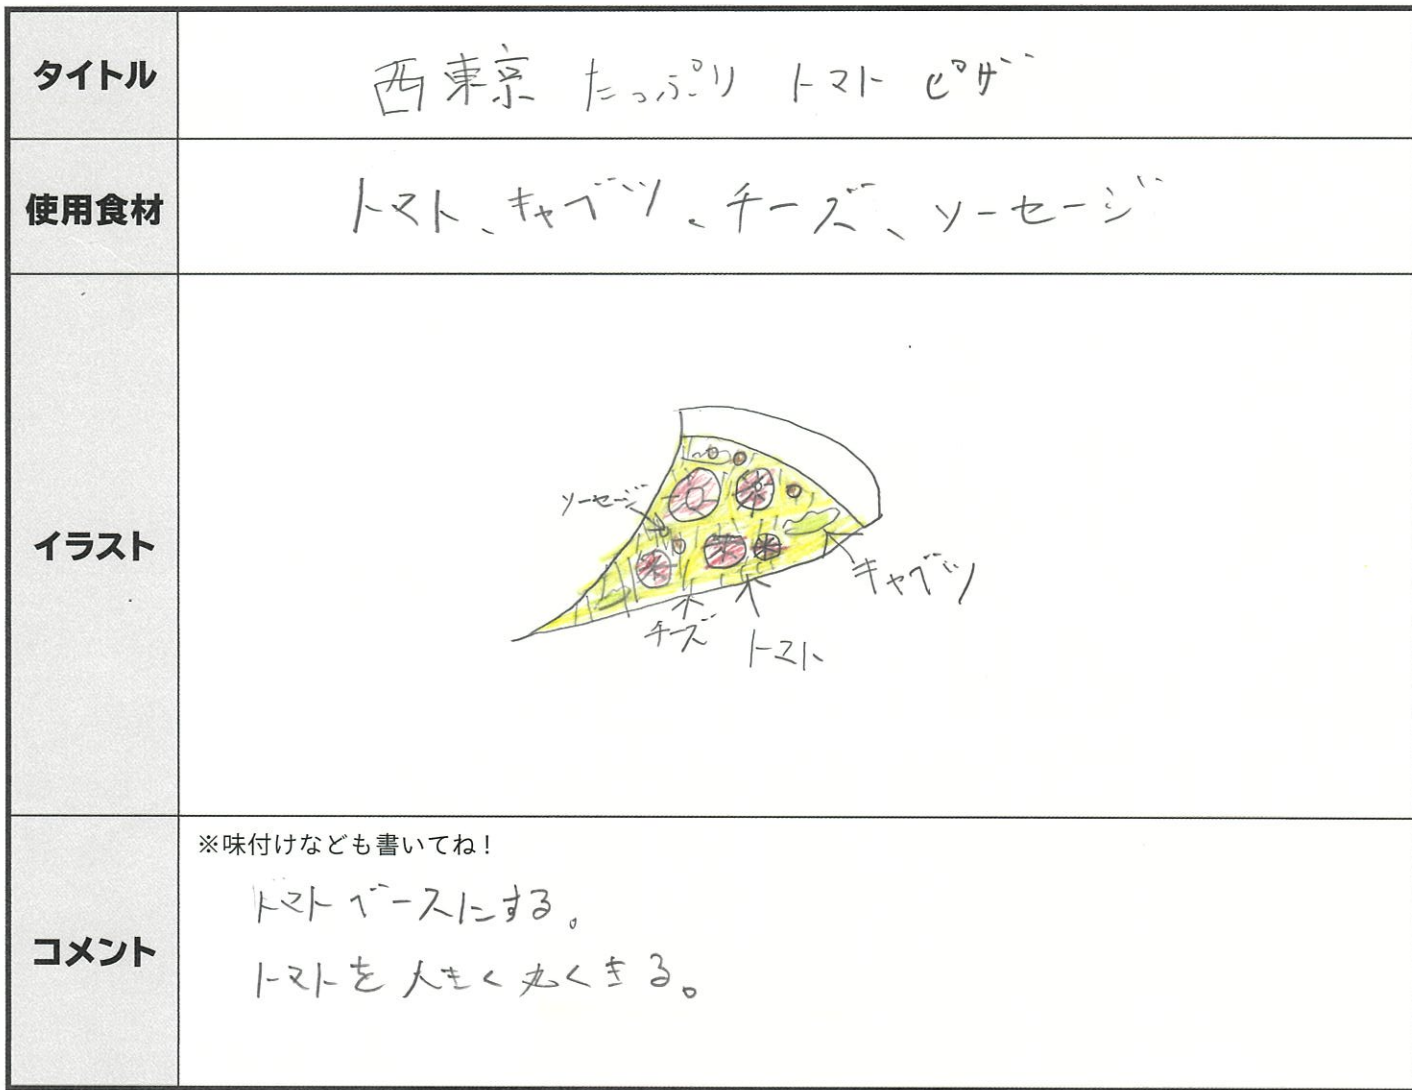 タイトル
西東京 たっぷり トマト ピザ
使用食材
トマト、キャベツ、チーズ、ソーセージ
イラスト
ソーセージ
キャベツ
チーズ
トマト
コメント
※味付けなども書いてね!
トマトベースにする。
トマトを大きく丸くきる。